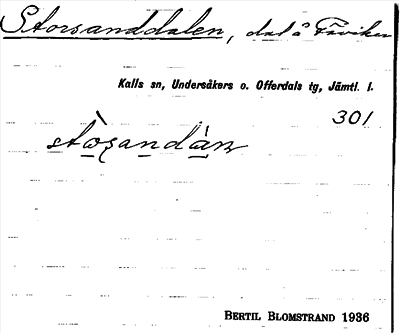 Storsanddalen, dal å Fäviken
Kalls sn, Undersåkers o. Offerdals tg, Jämtl. l.
301
stòsandàn
BERTIL BLOMSTRAND 1936